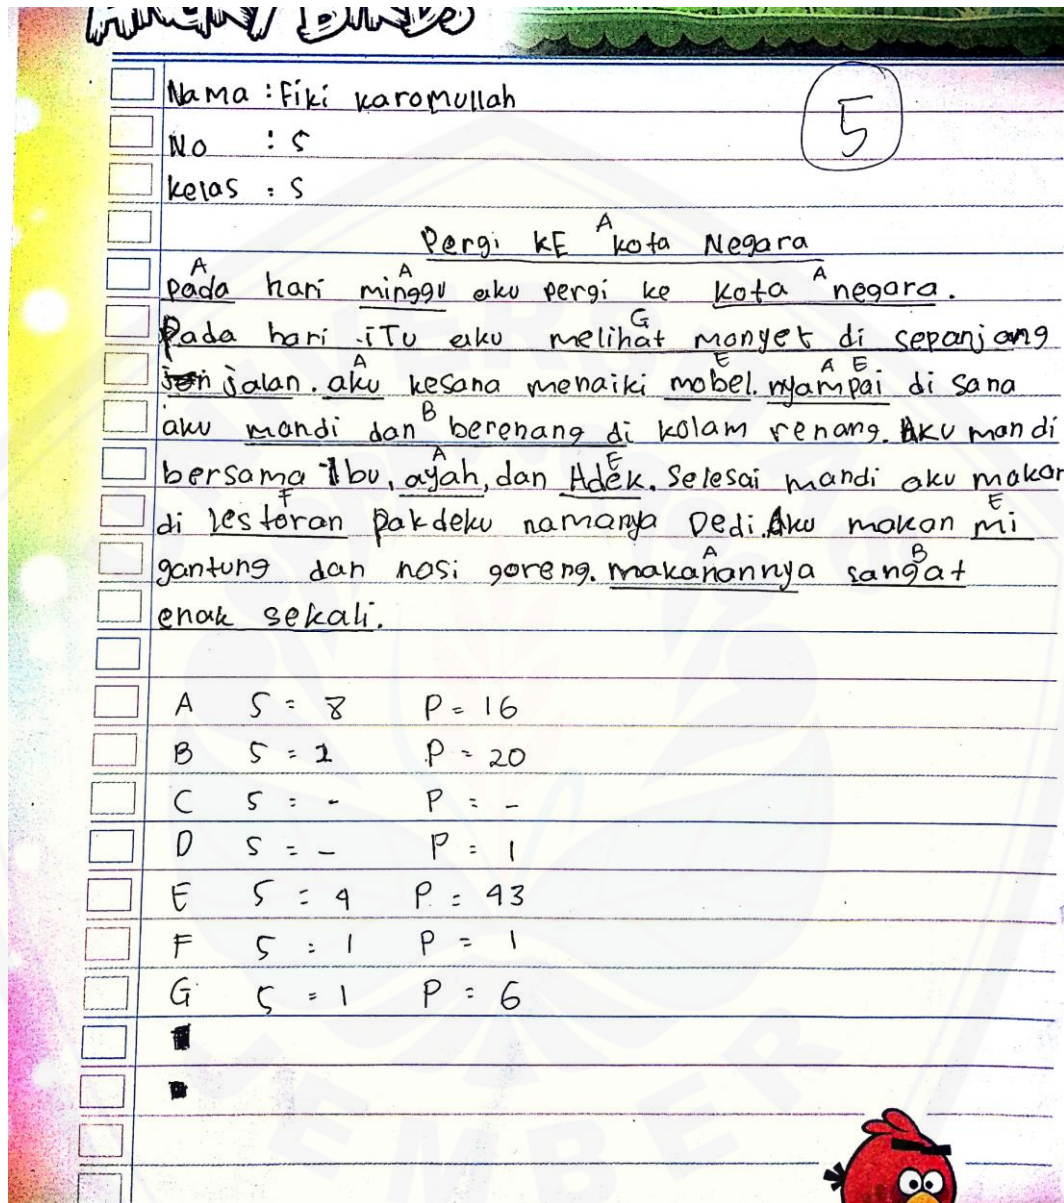 ANGRY BIRDS
Nama : Fiki karomullah
5
No : 5
kelas : 5
A
Pergi kE kota Negara
A A A
pada hari minggu aku pergi ke kota negara.
G
Pada hari iTu aku melihat monyet di sepanjang
A E A E
jalan. aku kesana menaiki mobel. nyampai di sana
B
aku mandi dan berenang di kolam renang. Aku mandi
A E
bersama Ibu, ayah, dan Adek. Selesai mandi aku makan
F E
di lestoran pakdeku namanya Dedi. Aku makan mi
A B
gantung dan nasi goreng. makanannya sangat
enak sekali.
A S = 8 P = 16
B S = 2 P = 20
C S = - P = -
D S = - P = 1
E S = 4 P = 43
F S = 1 P = 1
G S = 1 P = 6
JEMBER